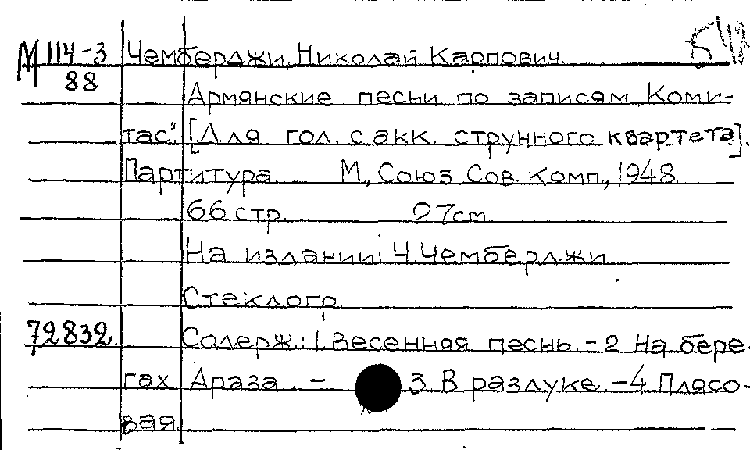 М 114-3 Чемберджи, Николай Карпович 548
88
Армянские песни по записям Коми-
тас". [Для гол. с акк. струнного квартета].
Партитура. М., Союз Сов. Комп., 1948
66 стр. 27см
На издании: Ч. Чемберджи
Стеклогр.
72832 Содерж.: 1. Весенная песнь. - 2. На бере-
гах Араза. - 3. В разлуке. - 4. Плясо-
вая.